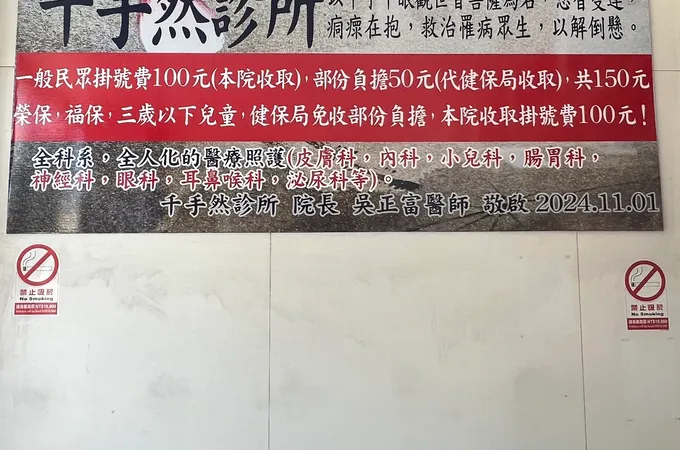 千手然診所
以千手千眼觀世音菩薩為名,
痌瘝在抱,救治罹病眾生,以解倒懸。
一般民眾掛號費100元(本院收取),部份負擔50元(代健保局收取),共150元
榮保,福保,三歲以下兒童,健保局免收部份負擔,本院收取掛號費100元!
全科系,全人化的醫療照護(皮膚科,內科,小兒科,腸胃科,
神經科,眼科,耳鼻喉科,泌尿科等)。
千手然診所 院長 吳正富醫師 敬啟 2024.11.01
禁止吸菸
No Smoking
禁止吸菸
No Smoking